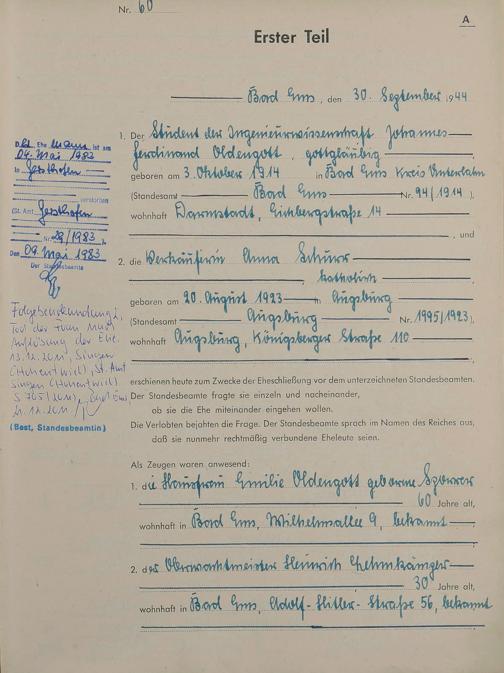 Nr. 60
A
Erster Teil
Bad Ems, den 30. September 1944
1. Der Student der Ingenieurwissenschaft Johannes
Ferdinand Oldengott, gottgläubig
geboren am 3. Oktober 1914 in Bad Ems Kreis Unterlahn
(Standesamt Bad Ems Nr. 94/1914),
wohnhaft Darmstadt, Eichbergstraße 14
, und
2. die Verkäuferin Anna Schurr
katholisch
geboren am 20. August 1923 in Augsburg
(Standesamt Augsburg Nr. 1995/1923),
wohnhaft Augsburg, Königsberger Straße 110
erschienen heute zum Zwecke der Eheschließung vor dem unterzeichneten Standesbeamten.
Der Standesbeamte fragte sie einzeln und nacheinander,
ob sie die Ehe miteinander eingehen wollen.
Die Verlobten bejahten die Frage. Der Standesbeamte sprach im Namen des Reiches aus,
daß sie nunmehr rechtmäßig verbundene Eheleute seien.
Als Zeugen waren anwesend:
1. die Hausfrau Emilie Oldengott geborene Sporrer
60 Jahre alt,
wohnhaft in Bad Ems, Wilhelmsallee 9, bekannt
2. der Oberwachtmeister Heinrich
30 Jahre alt,
wohnhaft in Bad Ems, Adolf-Hitler-Straße 56, bekannt
D. Ehemann ist am
04. Mai 1983
in Gersthofen
verstorben
(St. Amt Gersthofen
Nr. 28/1983).
Den 09. Mai 1983
Der Standesbeamte
Folgebeurkundung ü.
Tod der Frau nach
Auflösung der Ehe.
13.12.2011, Singen
(Hohentwiel), St. Amt
Singen (Hohentwiel)
S 705/2011, Bad Ems,
21.12.2011
(Best, Standesbeamtin)